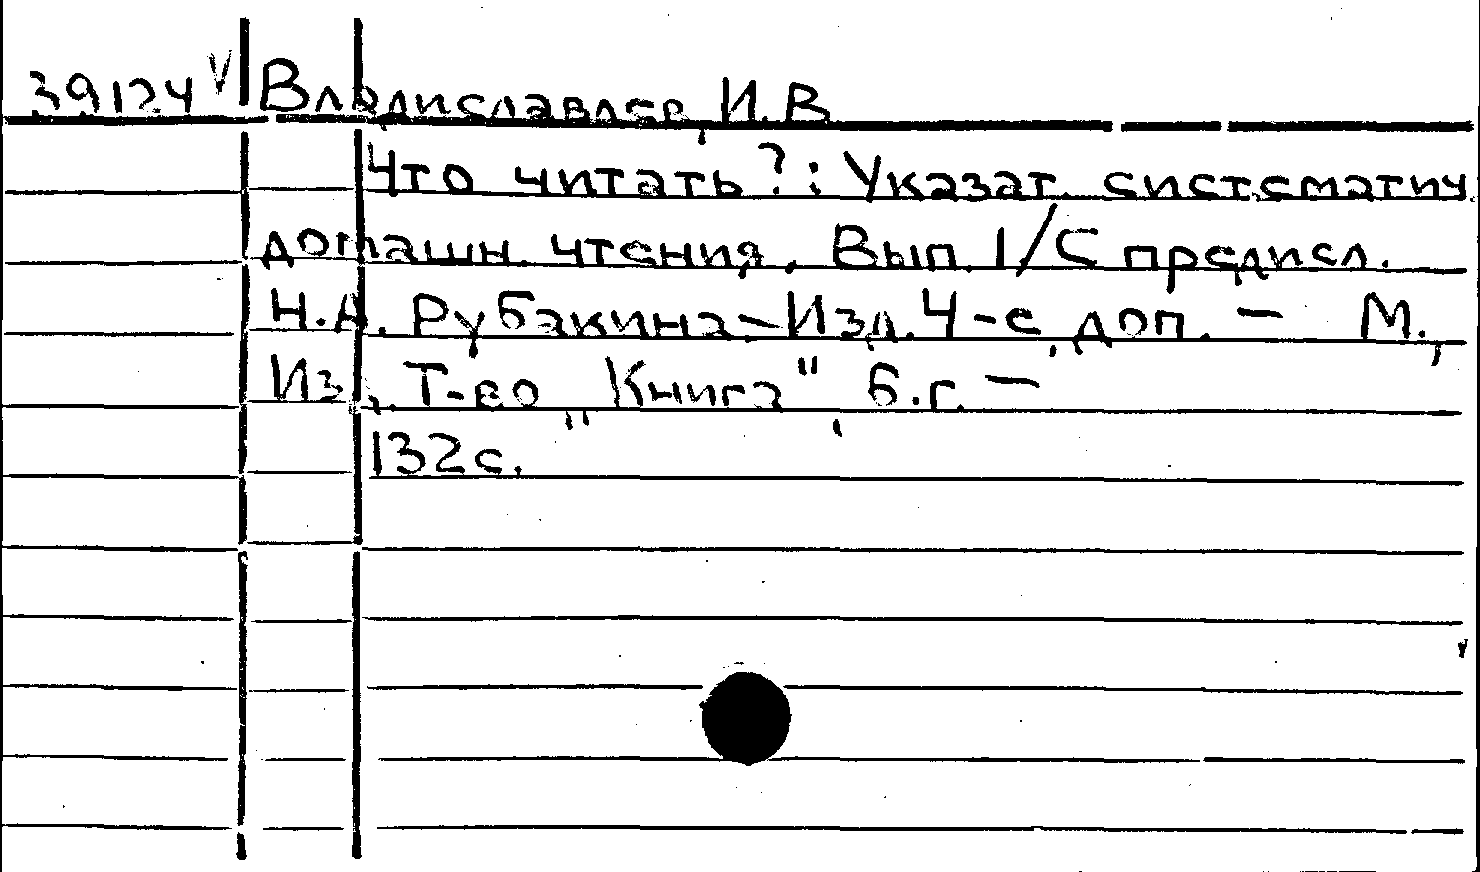 39124 V Владиславлев, И.В.
Что читать?: Указат. систематич.
домашн. чтения. Вып. 1/С предисл.
Н.А. Рубакина–Изд. 4-е, доп. – М.,
Изд. Т-во „Книга", б.г. –
132с.